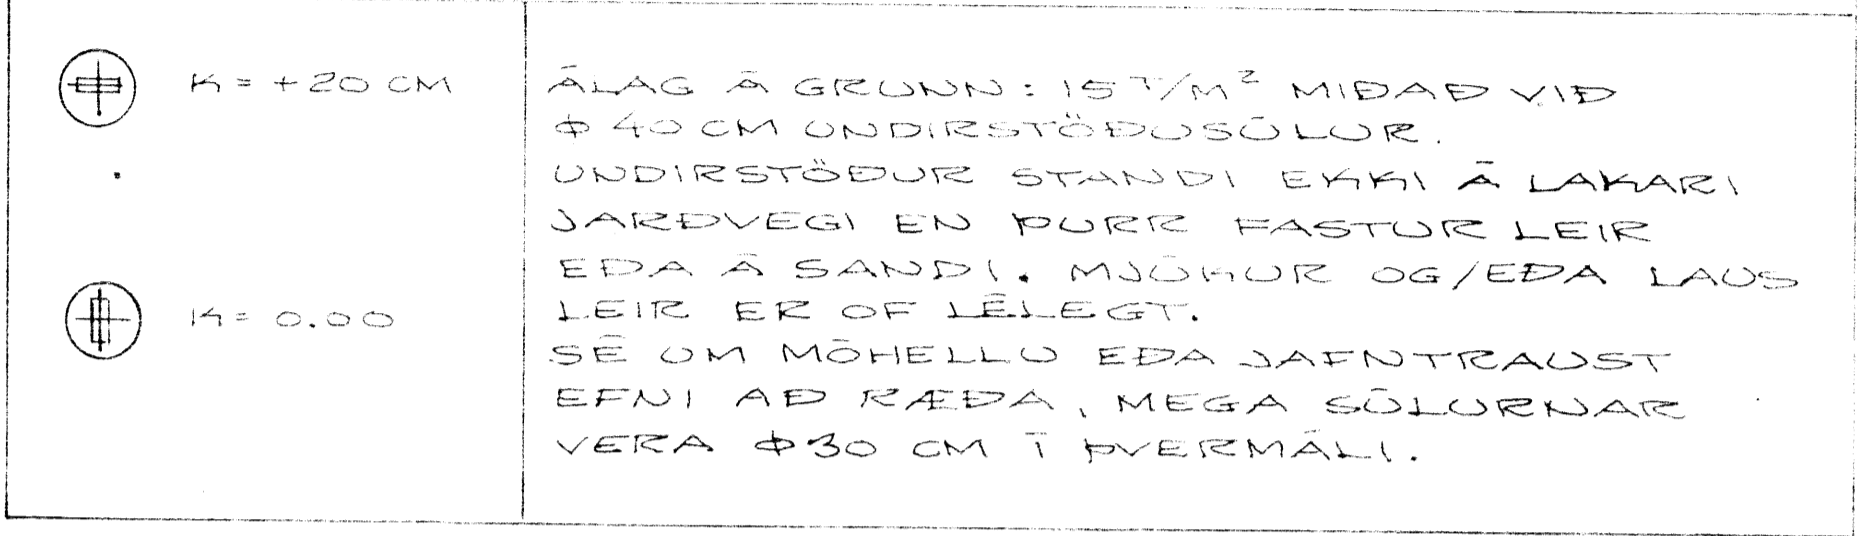 K = +20 CM
K = 0.00
ÁLAG Á GRUNN: 15 T/M² MIÐAÐ VIÐ
Φ 40 CM UNDIRSTÖÐUSÚLUR.
UNDIRSTÖÐUR STANDI EKKI Á LAKARI
JARÐVEGI EN ÞURR FASTUR LEIR
EÐA Á SANDI. MJÚKUR OG/EÐA LAUS
LEIR ER OF LÉLEGT.
SÉ UM MÓHELLU EÐA JAFNTRAUST
EFNI AÐ RÆÐA, MEGA SÚLURNAR
VERA Φ30 CM Í ÞVERMÁLI.